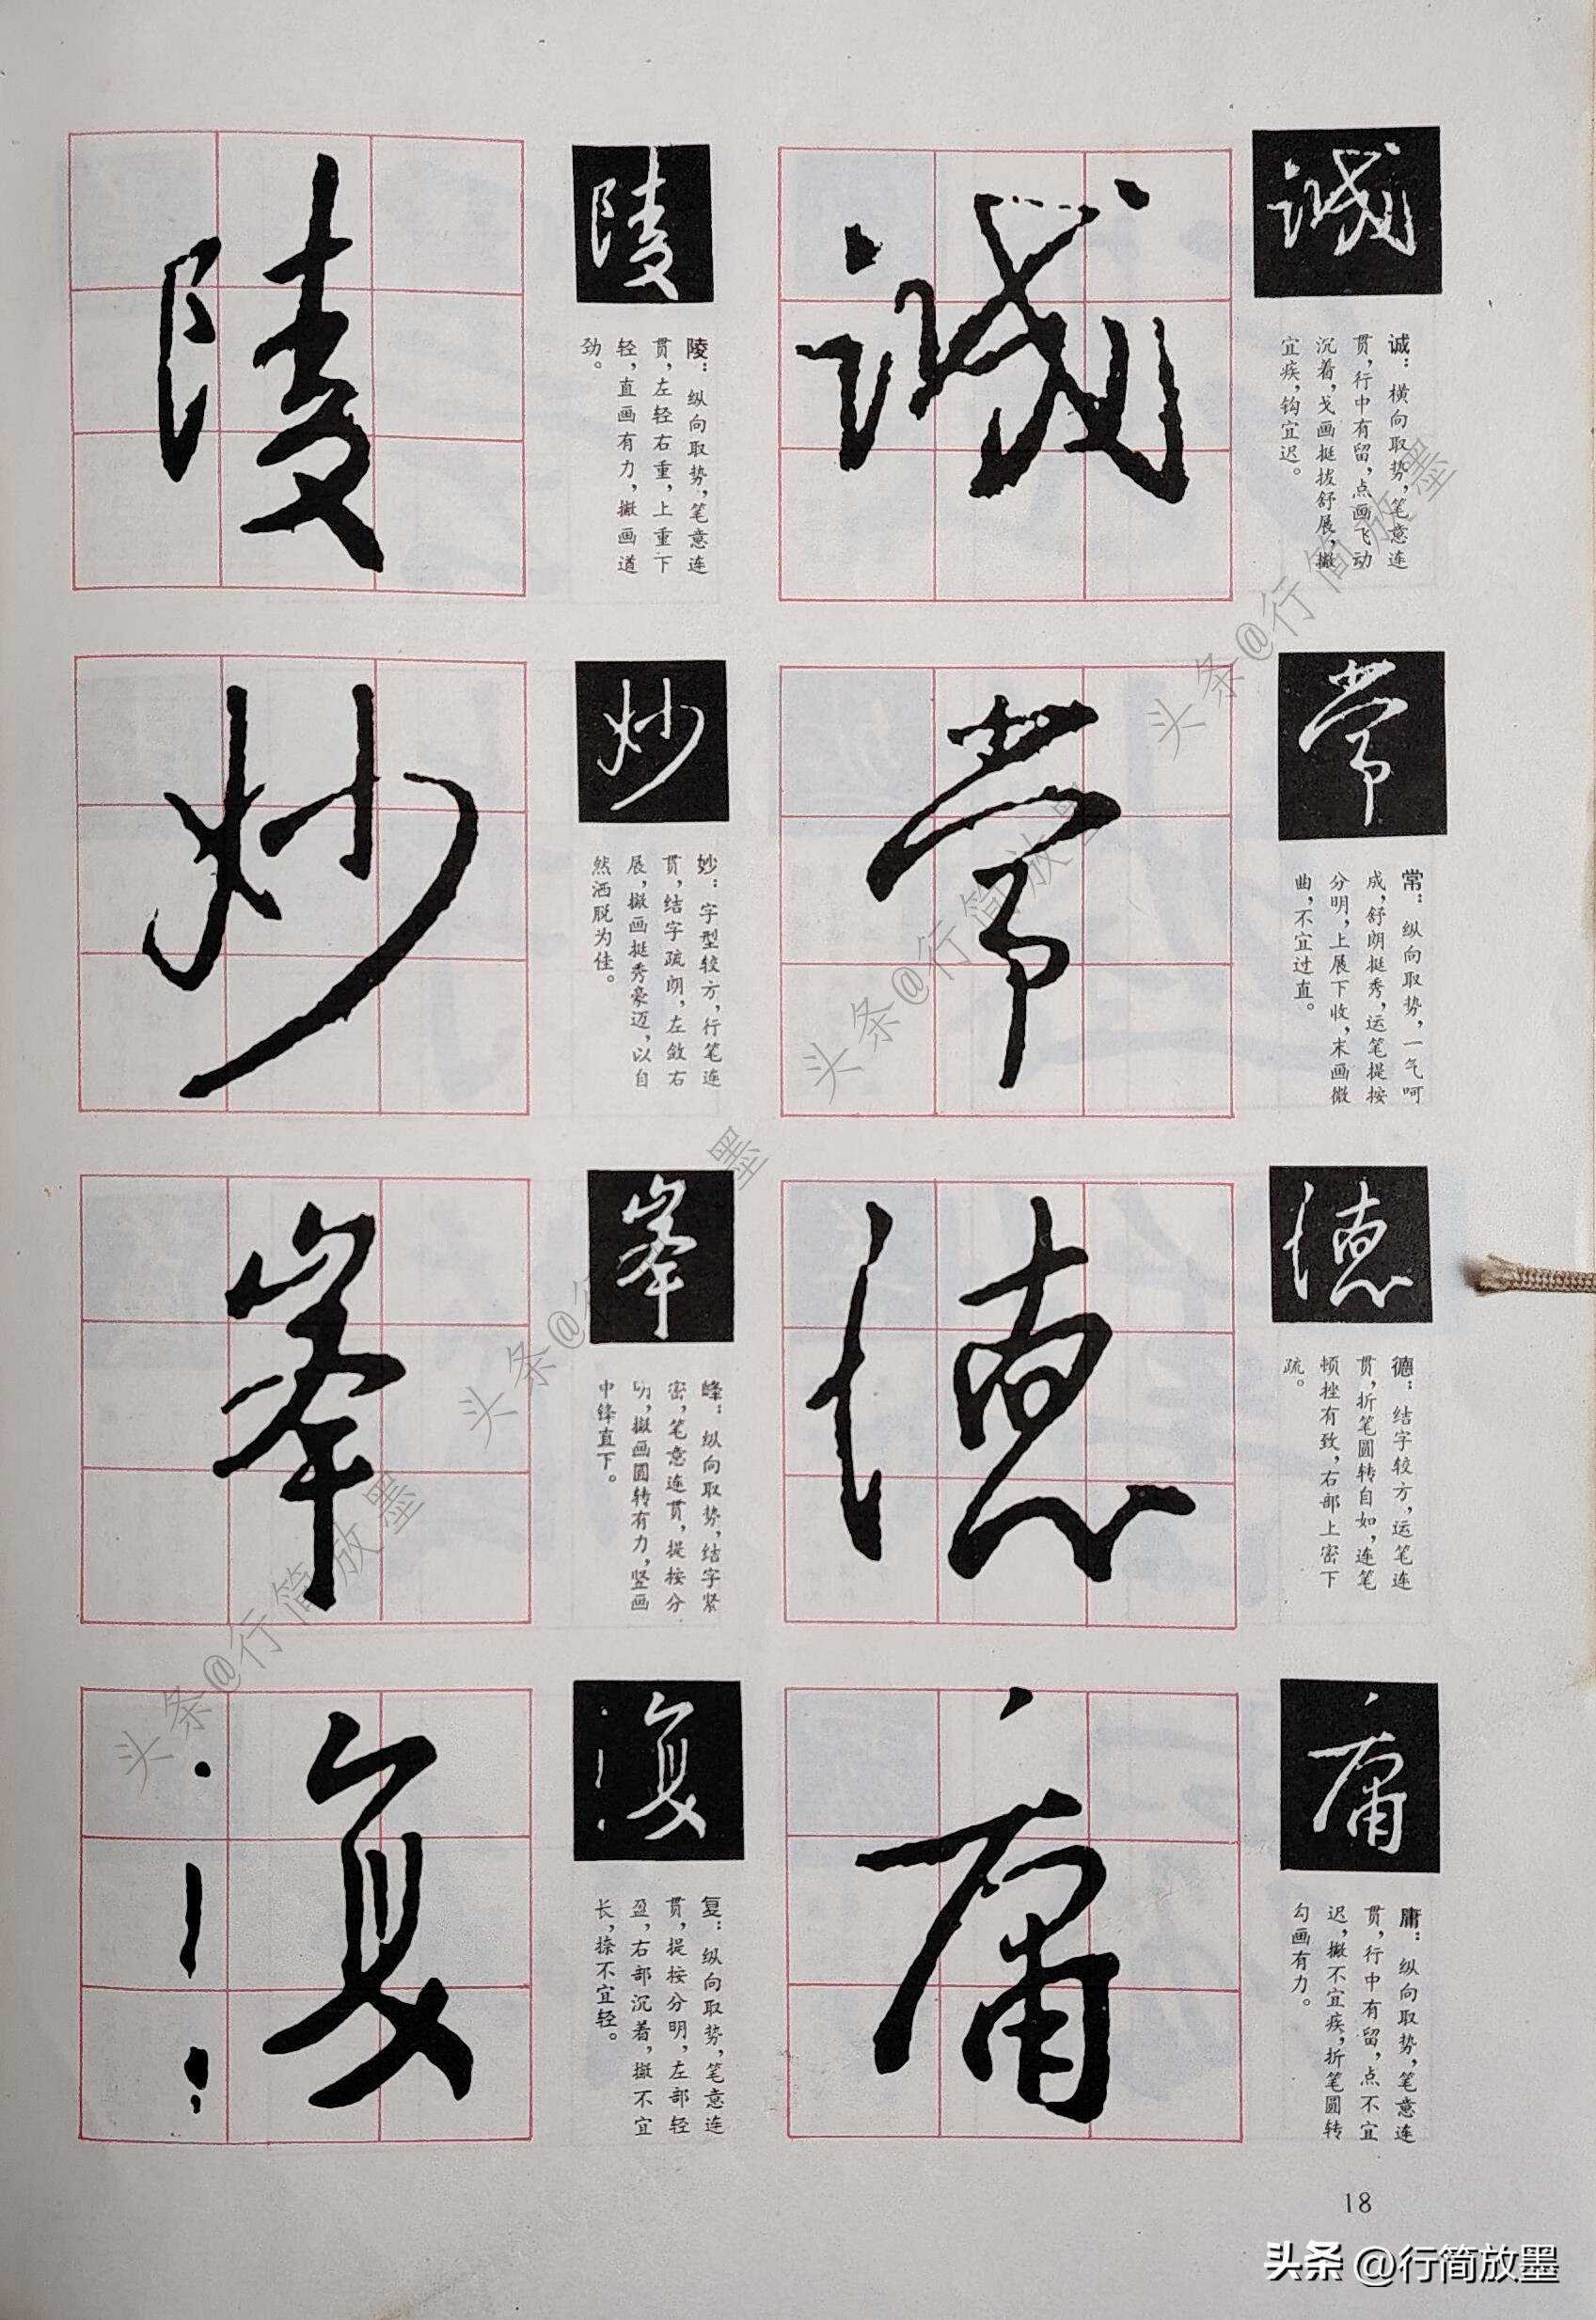 誠
诚：横向取势，笔意连
贯，行中有留，点画飞动
沉着，戈画挺拔舒展，撇
宜疾，钩宜迟。
陵
陵：纵向取势，笔意连
贯，左轻右重，上重下
轻，直画有力，撇画遒
劲。
常
常：纵向取势，一气呵
成，舒朗挺秀，运笔提按
分明，上展下收，末画微
曲，不宜过直。
妙
妙：字型较方，行笔连
贯，结字疏朗，左敛右
展，撇画挺秀豪迈，以自
然洒脱为佳。
德
德：结字较方，运笔连
贯，折笔圆转自如，连笔
顿挫有致，右部上密下
疏。
峯
峰：纵向取势，结字紧
密，笔意连贯，提按分
明，撇画圆转有力，竖画
中锋直下。
庸
庸：纵向取势，笔意连
贯，行中有留，点不宜
迟，撇不宜疾，折笔圆转
勾画有力。
復
复：纵向取势，笔意连
贯，提按分明，左部轻
盈，右部沉着，撇不宜
长，捺不宜轻。
18
头条@行简放墨
头条@行简放墨
头条@行简放墨
头条@行简放墨
头条 @行简放墨